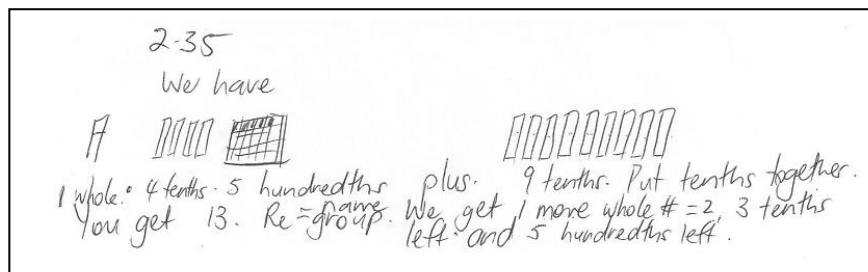 2.35
We have
1 whole. 4 tenths. 5 hundredths plus. 9 tenths. Put tenths together.
You get 13. Re=name group. We get 1 more whole # =2, 3 tenths
left. and 5 hundredths left.